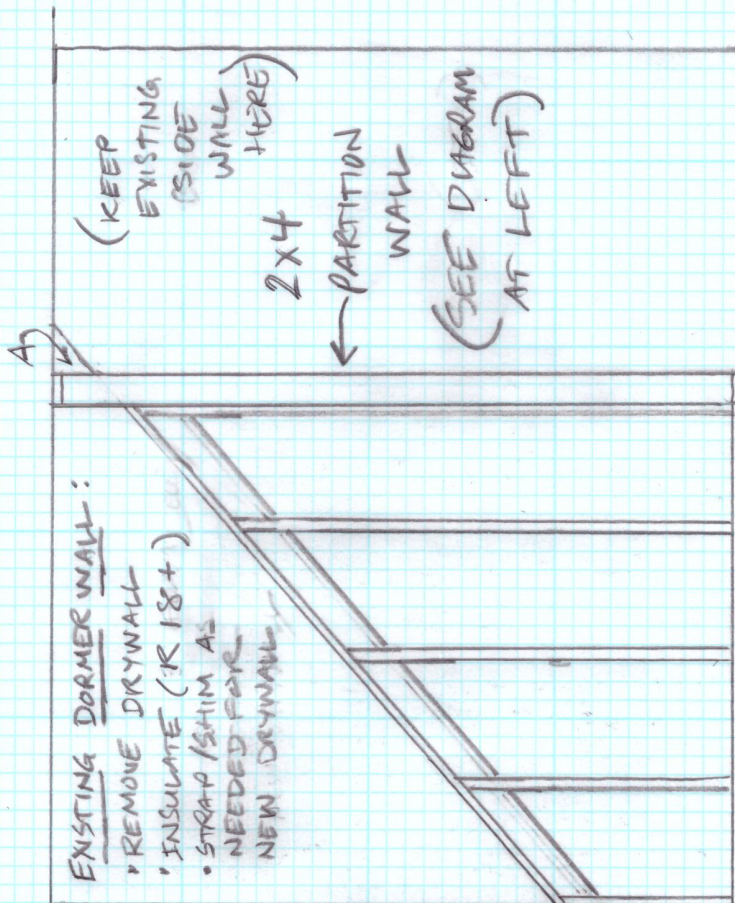 EXISTING DORMER WALL:
• REMOVE DRYWALL
• INSULATE (R 18+)
• STRAP/SHIM AS
NEEDED FOR
NEW DRYWALL
A
(KEEP
EXISTING
SIDE
WALL
HERE)
2x4
← PARTITION
WALL
(SEE DIAGRAM
AT LEFT)